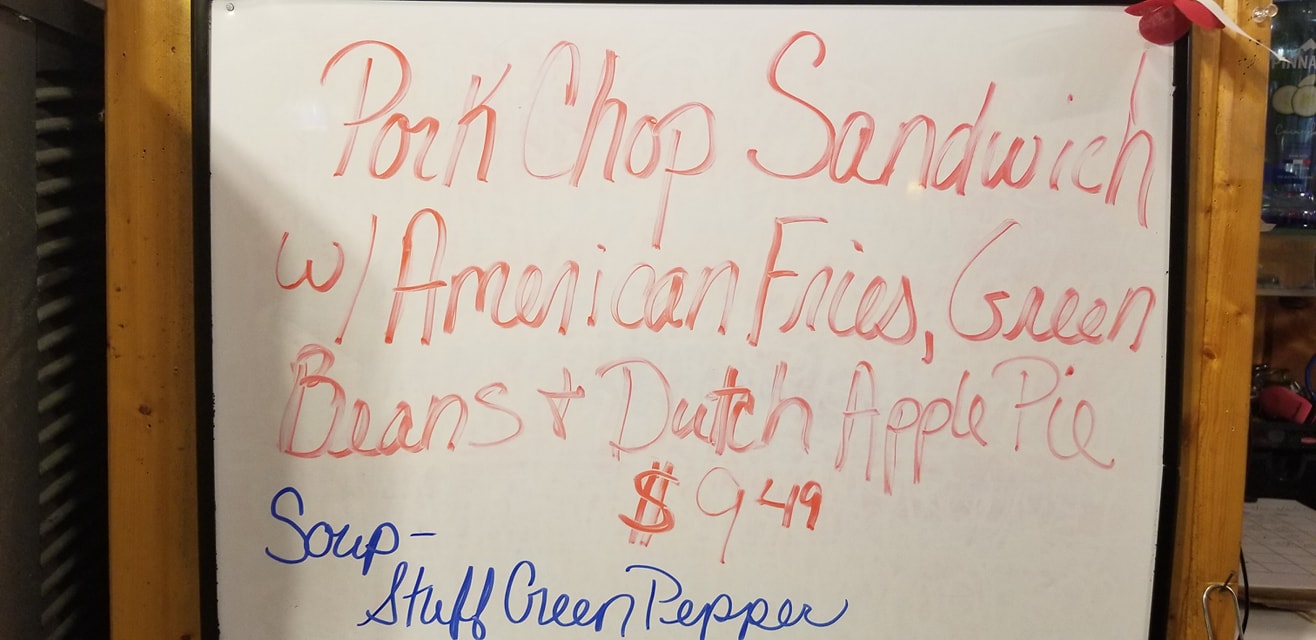 Pork Chop Sandwich
w/ American Fries, Green
Beans + Dutch Apple Pie
$9.49
Soup-
Stuff Green Pepper
PINNA